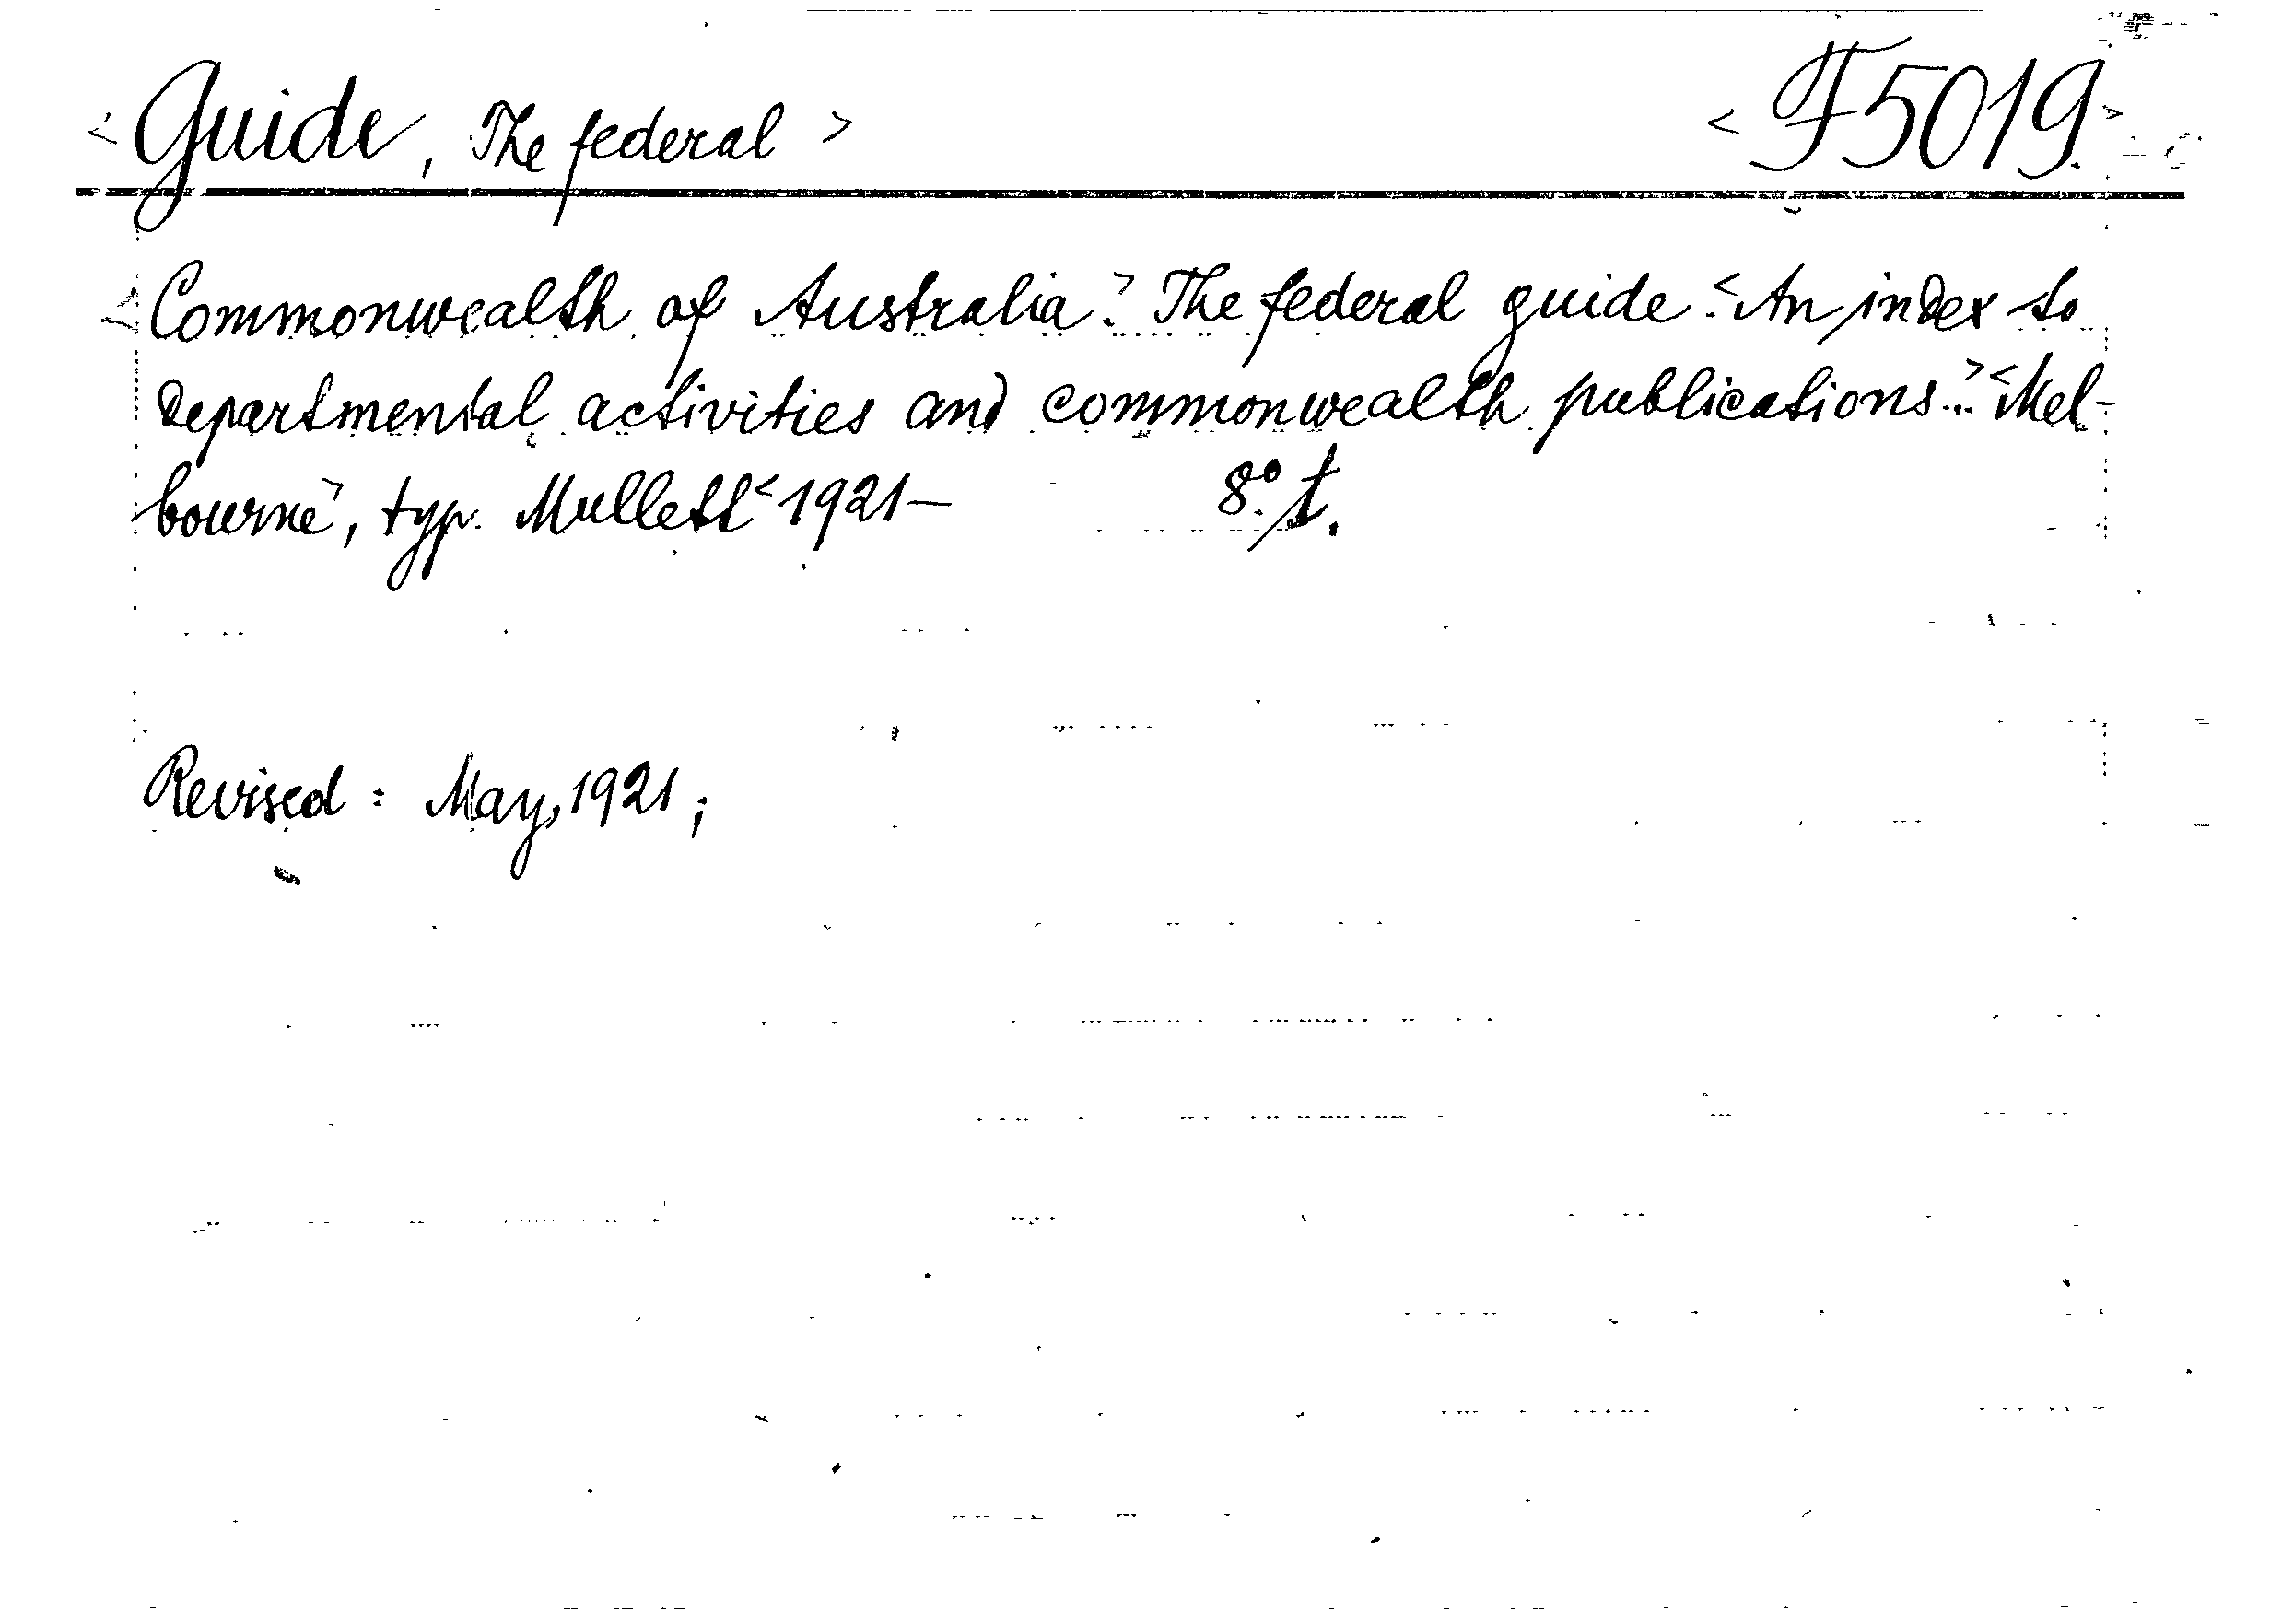 <Guide, The federal> <F5019.>
<Commonwealth of Australia.> The federal guide.<An index to
departmental activities and commonwealth publications...><Mel-
bourne>, typ. Mullett<1921— 8.° t.
Revised: May, 1921;